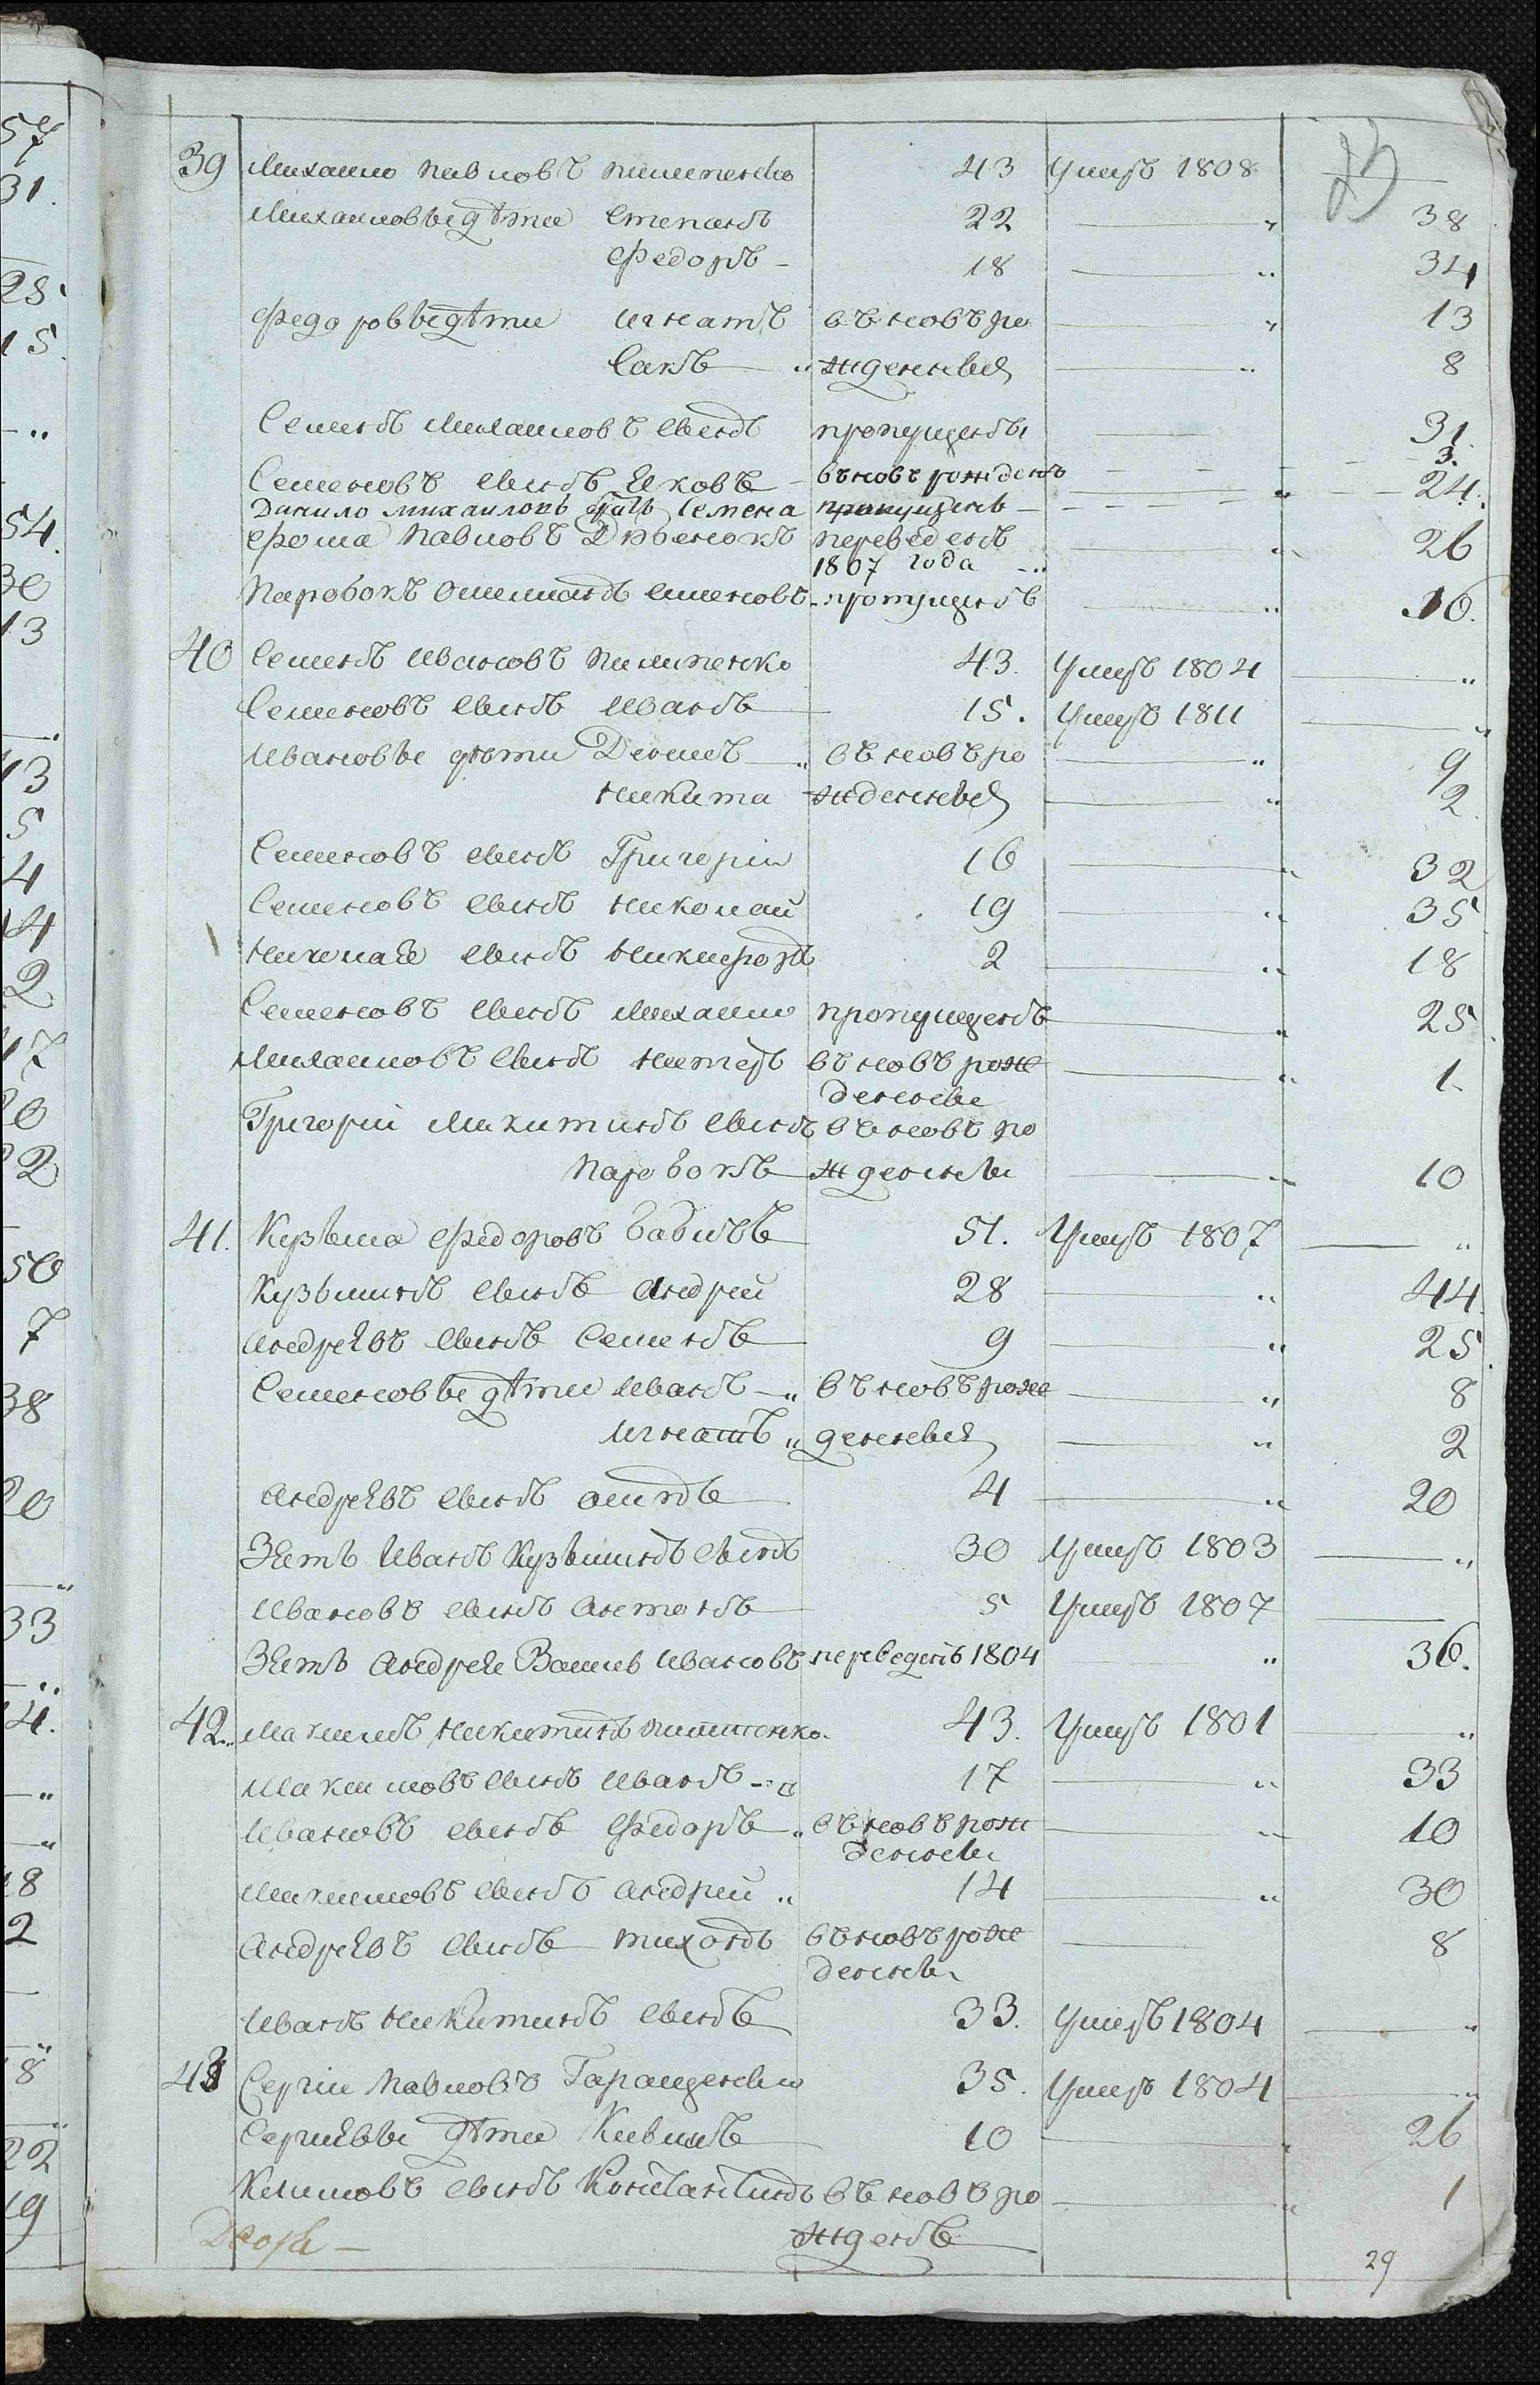 39 Михаило Павловъ Пилипенко 43 Умеръ 1808
Михаиловы дѣти Степанъ 22 — „ 38
Федоръ 18 — „ 34
Федоровы дѣти Игнатъ въновѣ ро — „ 13
Сакъ „ жденныя — „ 8
Семенъ Михаиловъ сынъ пропущены — 31.
Семеновъ сынъ Яковъ въновѣ рожденъ — 3.
Данило Михаиловъ братъ Семена пропущенъ — 24.
Фома Павловъ переведенъ — „ 26
1807 года
Паробокъ Семеновъ пропущенъ — „ 16.
40 Семенъ Ивановъ Пилипенко 43. Умеръ 1804 — „
Семеновъ сынъ Иванъ 15. Умеръ 1811 — „
Ивановы дѣти Демидъ „ въновѣ ро — „ 9
Никита жденныя — „ 2
Семеновъ сынъ Григорій 16 — „ 32
Семеновъ сынъ Николай 19 — „ 35
Николаевъ сынъ Никифоръ 2 — „ 18
Семеновъ сынъ Михаило пропущенъ — „ 25
Михаиловъ сынъ въновѣ рож — „ 1.
денные
Григорій Микитинъ сынъ въновѣ ро
Паробокъ жденны — „ 10
41. Кузьма Федоровъ 51. Умеръ 1807 — „
Кузьминъ сынъ Андрей 28 — „ 44.
Андреевъ сынъ Семенъ 9 — „ 25.
Семеновы дѣти Иванъ „ въновѣ рож — „ 8
Игнатъ „ денныя — „ 2
Андреевъ сынъ 4 — „ 20
Зять Иванъ Кузьминъ сынъ 30 Умеръ 1803 — „
Ивановъ сынъ Антонъ 5 Умеръ 1807 —
Зять Андрей Ивановъ переведенъ 1804 „ 36.
42. Максимъ Никитинъ Пилипенко 43. Умеръ 1801 — „
Максимовъ сынъ Иванъ 17 — „ 33
Ивановъ сынъ Федоръ „ въновѣ рож — „ 10
денны
Максимовъ сынъ Андрей „ 14 — „ 30
Андреевъ сынъ Тихонъ въновѣ рож — 8
денны
Иванъ Никитинъ сынъ 33. Умеръ 1804 — „
43 Сергій Павловъ 35. Умеръ 1804 — „
Сергіевы дѣти 10 — „ 26
Климовъ сынъ Константинъ въновѣ ро — „ 1
жденъ
29